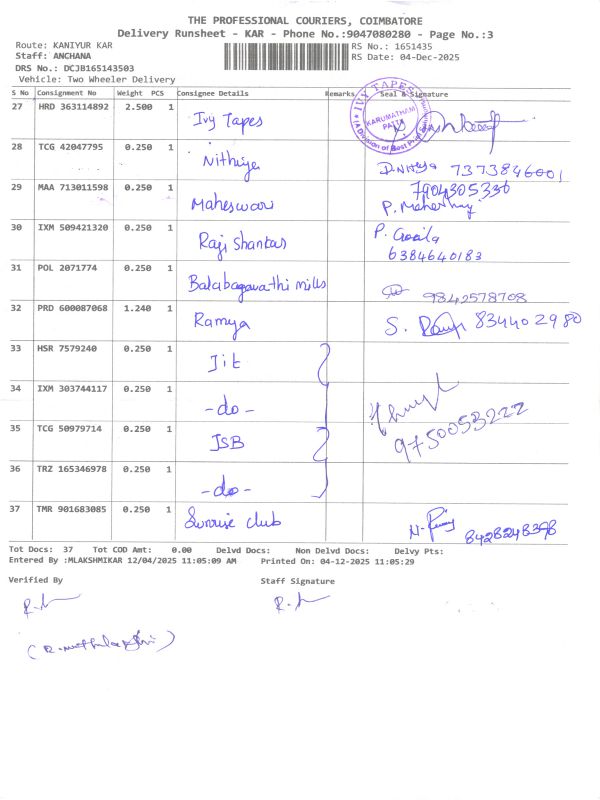 THE PROFESSIONAL COURIERS, COIMBATORE
Delivery Runsheet - KAR - Phone No.:9047080280 - Page No.:3
Route: KANIYUR KAR
Staff: ANCHANA
DRS No.: DCJB165143503
Vehicle: Two Wheeler Delivery
RS No.: 1651435
RS Date: 04-Dec-2025
S No Consignment No Weight PCS Consignee Details Remarks Seal & Signature
27 HRD 363114892 2.500 1 Ivy Tapes
IVY TAPES
KARUMATHAM
PATTI
28 TCG 42047795 0.250 1 Nithiya D.Nithya 7373846001
29 MAA 713011598 0.250 1 Maheswari 7904305336
30 IXM 509421320 0.250 1 Raji Shankar P.
6384640183
31 POL 2071774 0.250 1 Balabagavathi mills 9842578708
32 PRD 600087068 1.240 1 Ramya S. Ramya 834402980
33 HSR 7579240 0.250 1 Jit
34 IXM 303744117 0.250 1 -do-
9750053222
35 TCG 50979714 0.250 1 JSB
36 TRZ 165346978 0.250 1 -do-
37 TMR 901683085 0.250 1 Sunrise club 8428248398
Tot Docs: 37 Tot COD Amt: 0.00 Delvd Docs: Non Delvd Docs: Delvy Pts:
Entered By :MLAKSHMIKAR 12/04/2025 11:05:09 AM Printed On: 04-12-2025 11:05:29
Verified By Staff Signature